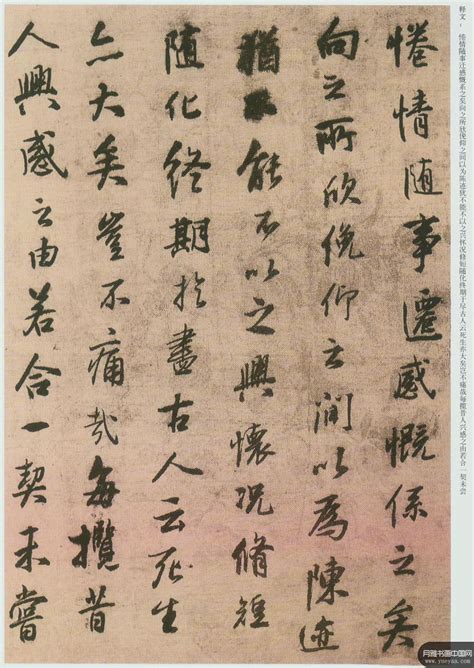 释文：倦情随事迁感慨系之矣向之所欣俛仰之间以为陈迹犹不能不以之兴怀况修短随化终期于尽古人云死生亦大矣岂不痛哉每揽昔人兴感之由若合一契未尝
惓情随事遷感慨係之矣
向之所欣俛仰之閒以為陳迹
猶能不以之興懷況脩短
随化終期於盡古人云死生
亦大矣豈不痛哉每攬昔
人興感之由若合一契未嘗
月雅书画中国网